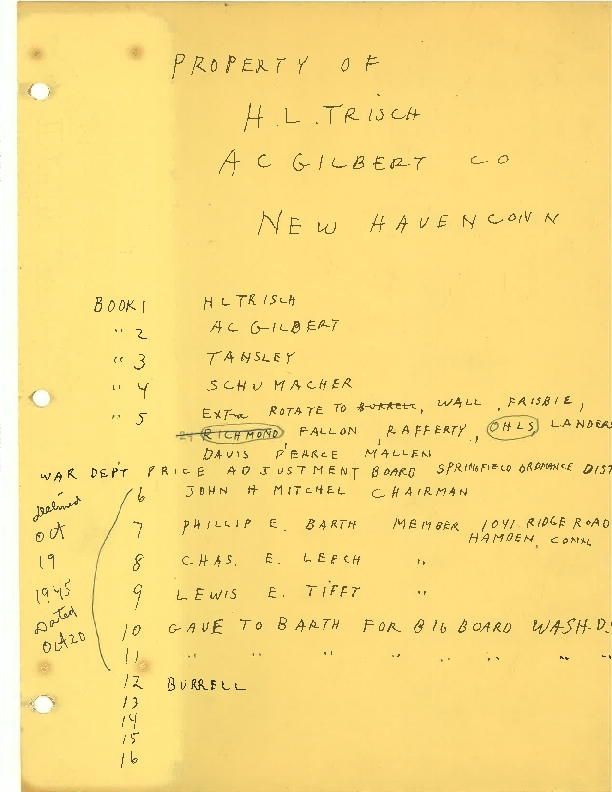 PROPERTY OF
H.L. TRISCH
A C GILBERT CO
NEW HAVEN CONN
BOOK 1 H L TRISCH
" 2 A C GILBERT
" 3 TANSLEY
" 4 SCHUMACHER
" 5 EXTRA ROTATE TO BURRELL, WALL, FRISBIE,
RICHMOND, FALLON, RAFFERTY, OHLS, LANDERS
DAVIS PEARCE MALLEN
WAR DEP'T PRICE ADJUSTMENT BOARD SPRINGFIELD ORDNANCE DIST
6 JOHN H MITCHEL CHAIRMAN
Oct
19
1945
Dated
Oct 20
7 PHILLIP E. BARTH MEMBER, 1041 RIDGE ROAD
HAMDEN, CONN
8 CHAS. E. LEECH "
9 LEWIS E. TIFFT "
10 GAVE TO BARTH FOR BIG BOARD WASH. D.
11 " " " " " " " "
12 BURRELL
13
14
15
16